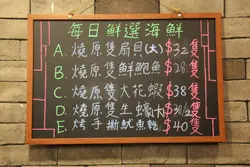 每日鮮選海鮮
A. 燒原隻扇貝(大) $32隻
B. 燒原隻鮮鮑魚 $28隻
C. 燒原隻大花蝦 $38隻
D. 燒原隻生蠔 隻
E. 烤手撕魷魚乾 $40隻